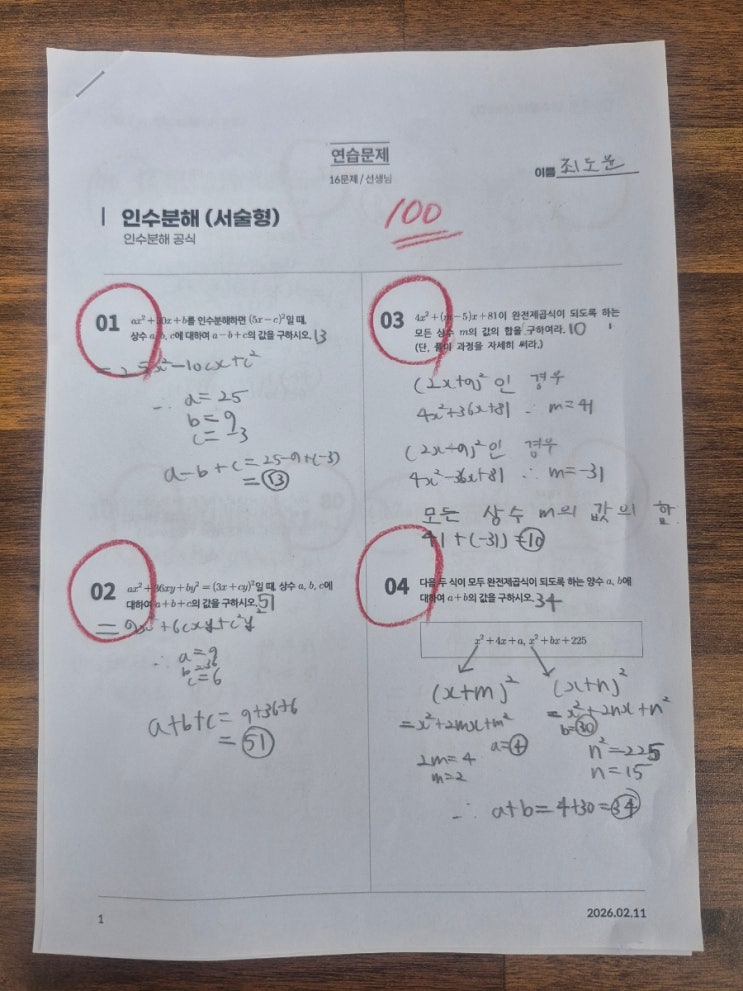 연습문제
16문제/선생님
이름 최도윤
100
인수분해 (서술형)
인수분해 공식
01
ax²+30x+b를 인수분해하면 (5x-c)²일 때,
상수 a, b, c에 대하여 a-b+c의 값을 구하시오. 13
= 25x²-10cx+c²
∴ a=25
b=9
c=-3
a-b+c=25-9+(-3)
=13
02
ax²+36xy+by²=(3x+cy)²일 때, 상수 a, b, c에
대하여 a+b+c의 값을 구하시오. 51
= 9x²+6cxy+c²y
∴ a=9
b=36
c=6
a+b+c=9+36+6
=51
03
4x²+(m-5)x+81이 완전제곱식이 되도록 하는
모든 상수 m의 값의 합을 구하여라. 10
(단, 풀이 과정을 자세히 써라.)
(2x+9)²인 경우
4x²+36x+81 ∴ m=41
(2x-9)²인 경우
4x²-36x+81 ∴ m=-31
모든 상수 m의 값의 합
41+(-31)=10
04
다음 두 식이 모두 완전제곱식이 되도록 하는 양수 a, b에
대하여 a+b의 값을 구하시오. 34
x²+4x+a, x²+bx+225
(x+m)²
=x²+2mx+m²
a=4
2m=4
m=2
(x+n)²
=x²+2nx+n²
b=30
n²=225
n=15
∴ a+b=4+30=34
1
2026.02.11